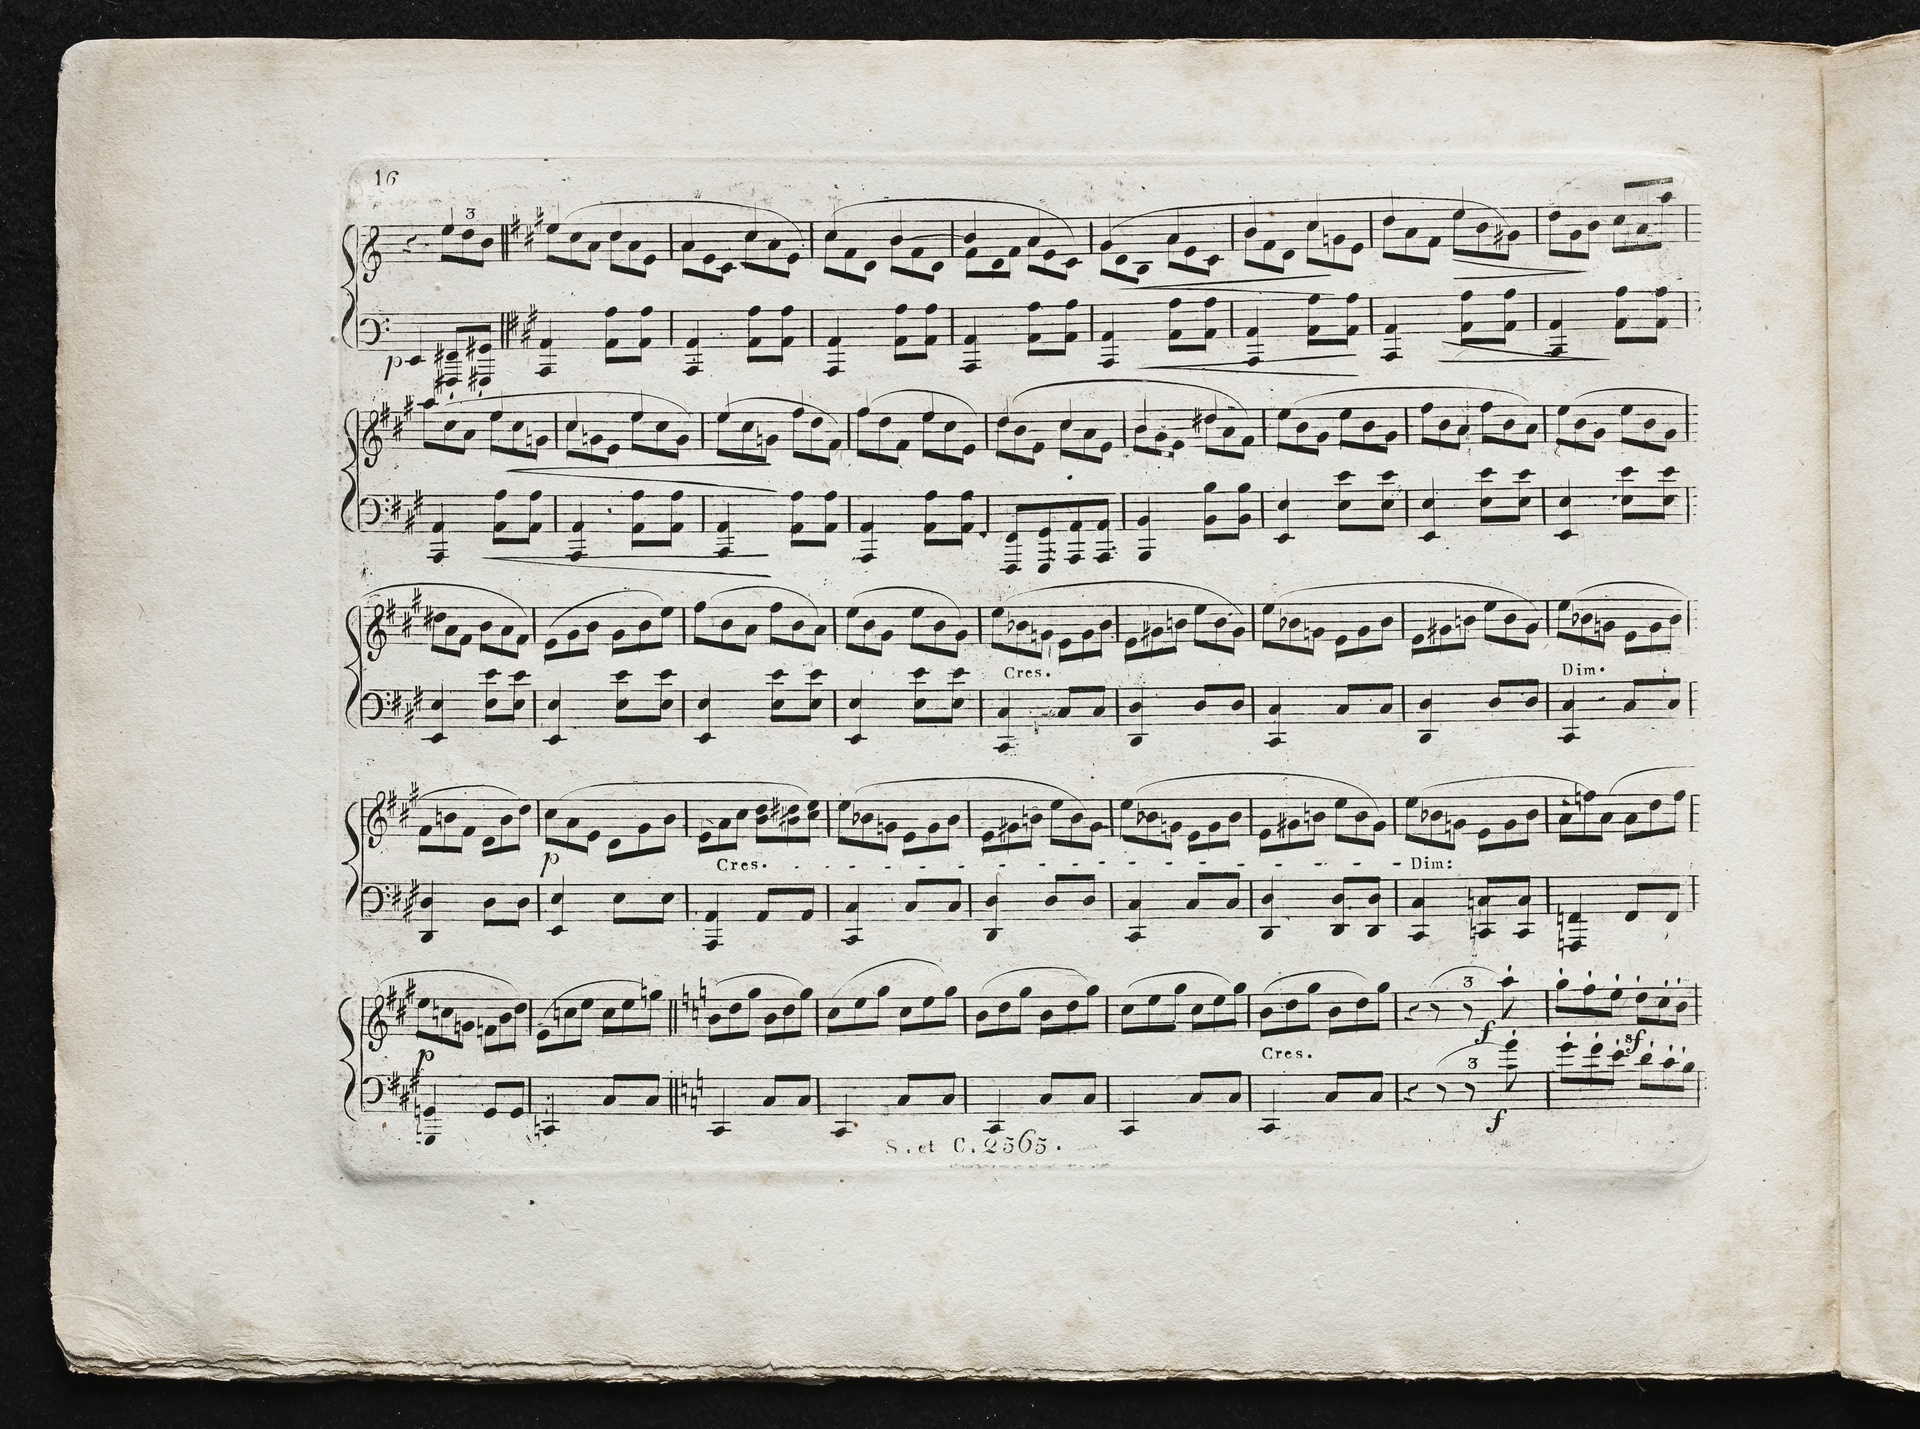 16
3
p
Cres.
Dim.
p
Cres. Dim:
3
f
p
Cres.
sf
3
f
S. et C. 2565.